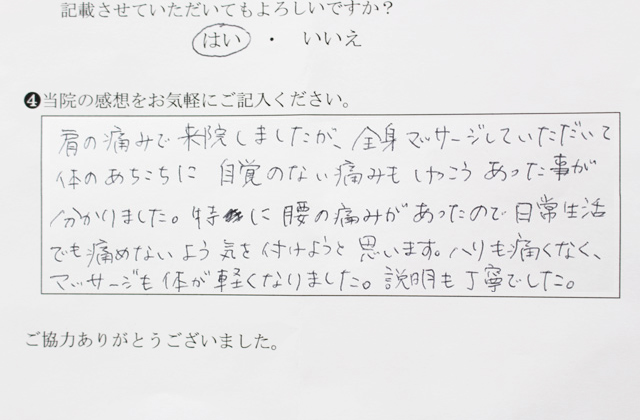 記載させていただいてもよろしいですか？
はい ・ いいえ
❹当院の感想をお気軽にご記入ください。
肩の痛みで来院しましたが、全身マッサージしていただいて
体のあちこちに 自覚のない痛みもけっこうあった事が
分かりました。特に腰の痛みがあったので日常生活
でも痛めないよう気を付けようと思います。ハリも痛くなく、
マッサージも体が軽くなりました。説明も丁寧でした。
ご協力ありがとうございました。